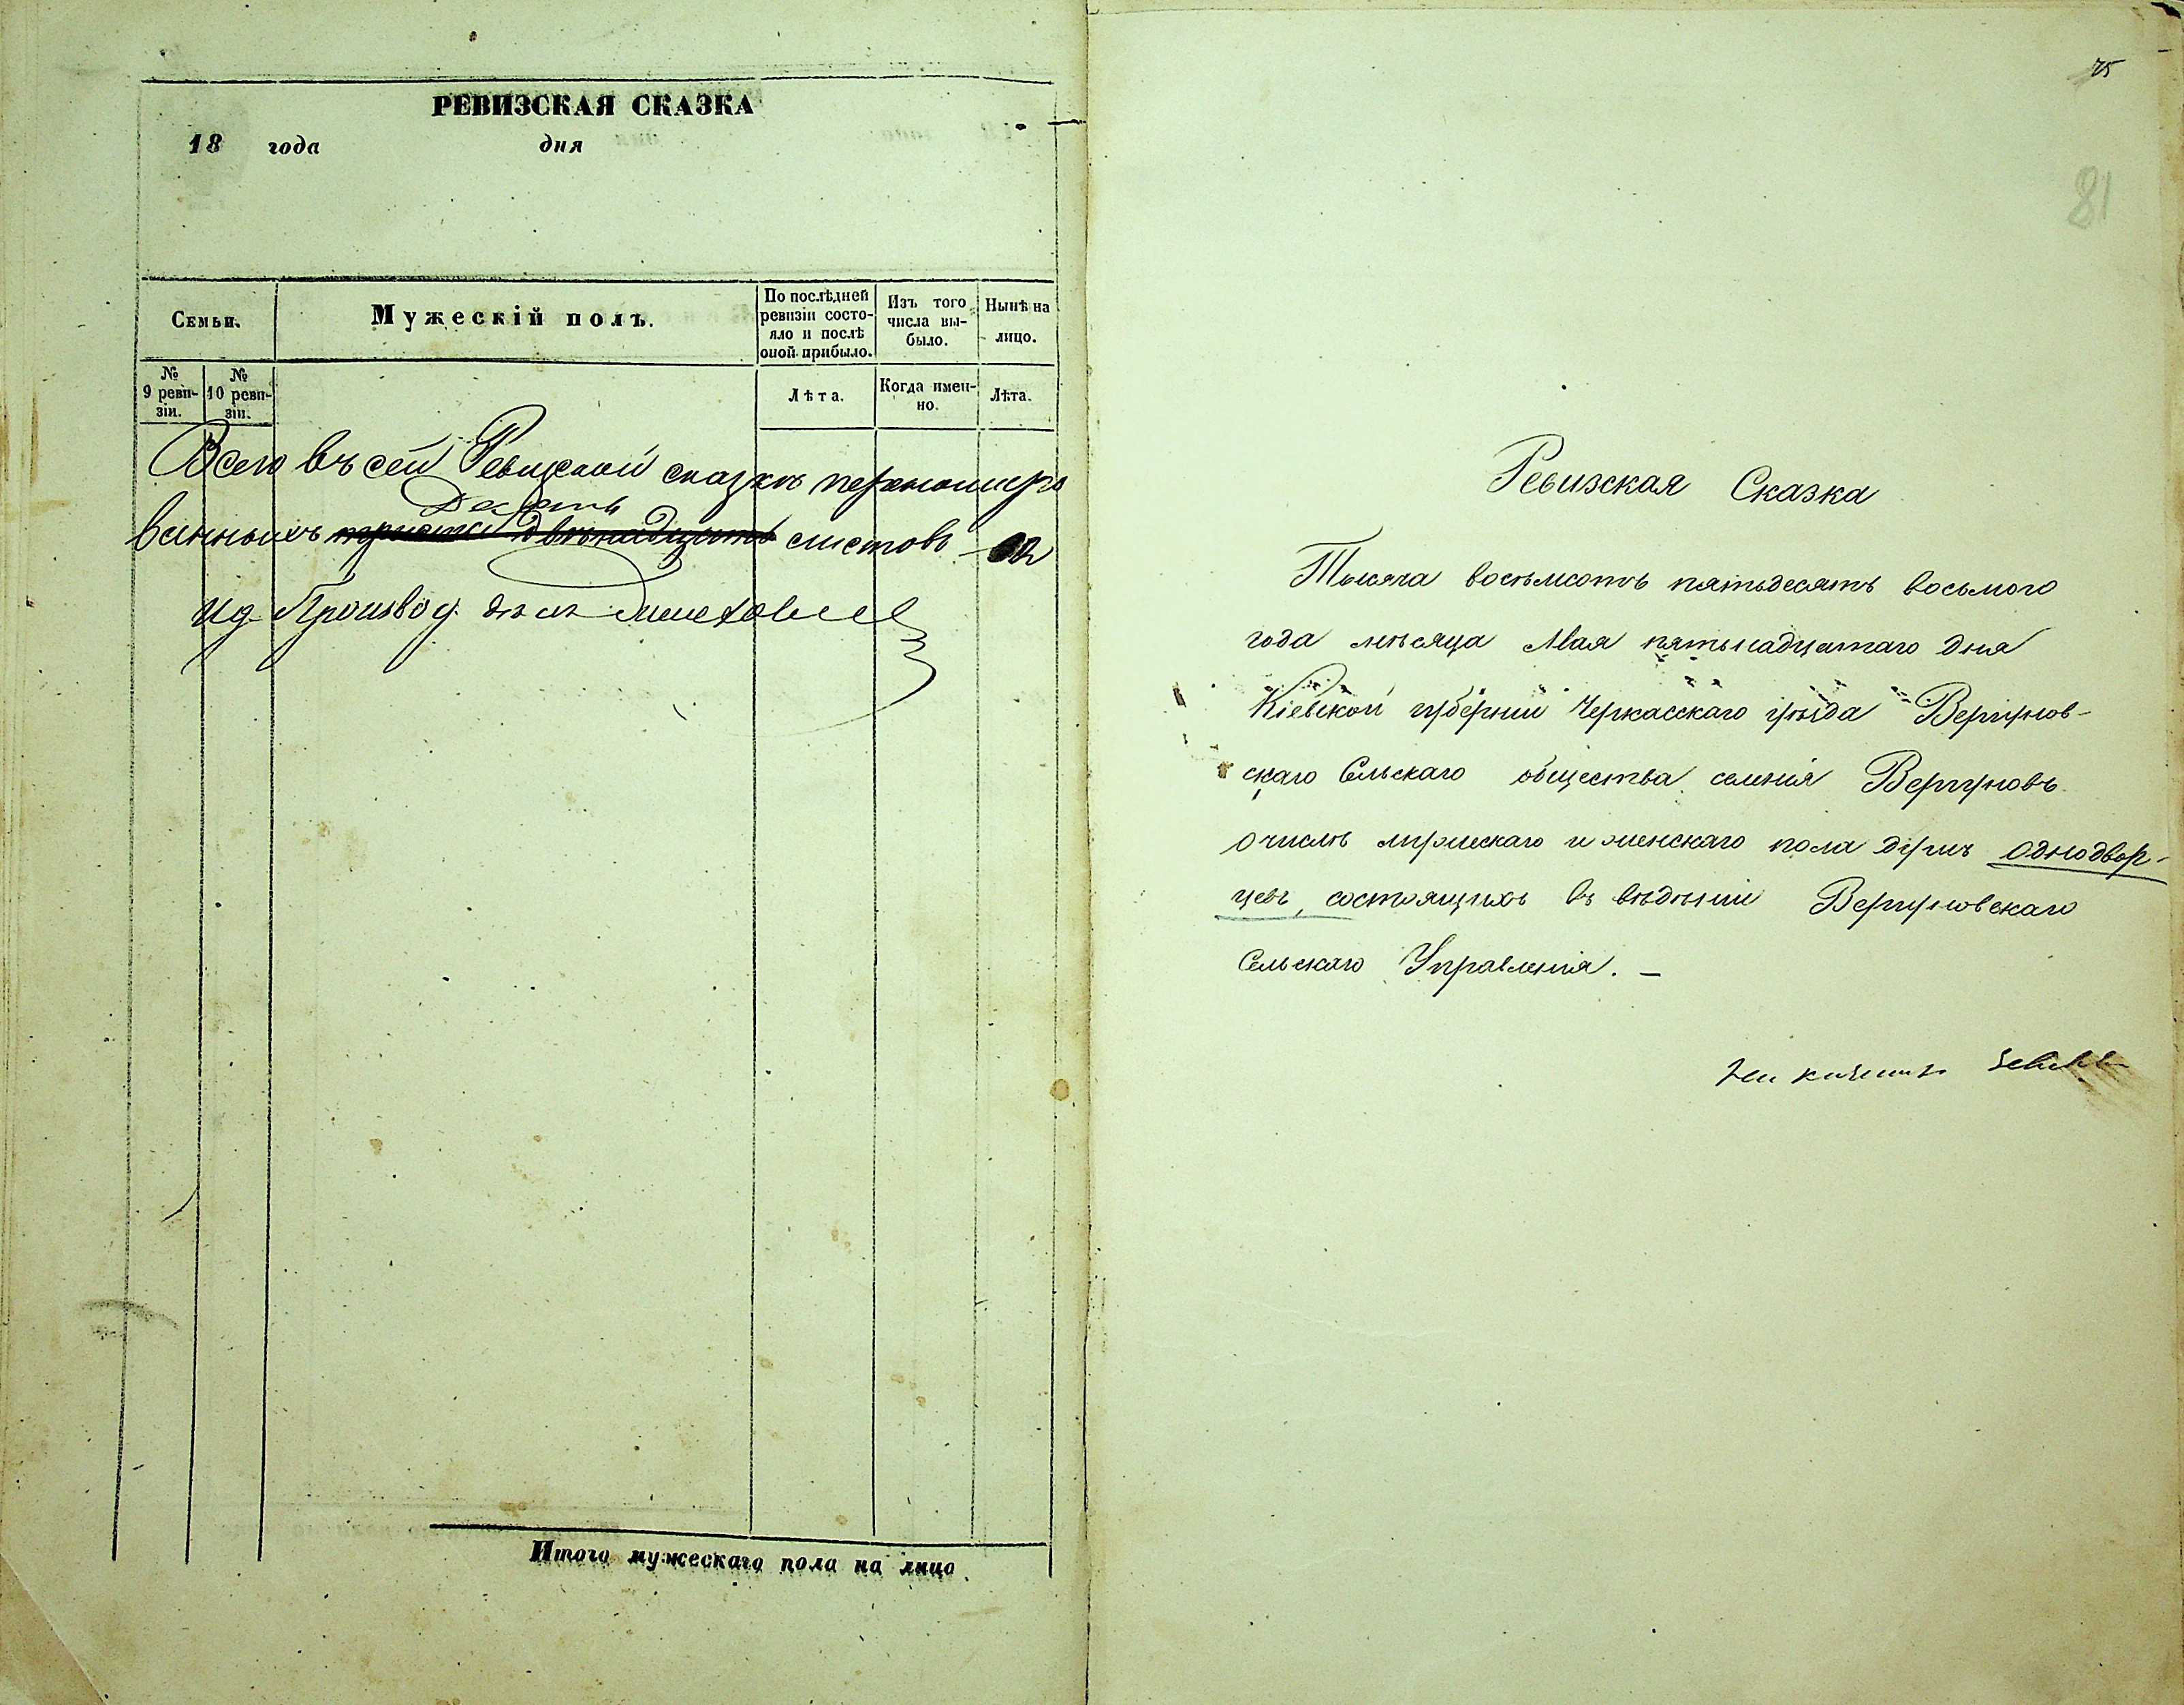 РЕВИЗСКАЯ СКАЗКА
18 года дня
Семьи.
Мужескій полъ.
По послѣдней ревизіи состо-
яло и послѣ оной прибыло.
Изъ того числа вы-
было.
Нынѣ на лицо.
№ 9 реви-
зіи.
№ 10 реви-
зіи.
Лѣта.
Когда имен-
но.
Лѣта.
Всего въ сей Ревизской сказкѣ перенумеро
Десять
ванныхъ листовъ
Ид. Производ. дѣлъ
Итого мужескаго пола на лицо
75
81
Ревизская Сказка
Тысяча восьмсотъ пятьдесятъ восьмого
года мѣсяца Мая пятьнадцатаго дня
Кіевской губерніи Черкасскаго уѣзда Вергунов-
скаго Сельскаго общества селенія Вергуновъ
о числѣ мужескаго и женскаго пола душъ однодвор-
цевъ, состоящихъ въ вѣденіи Вергуновскаго
Сельскаго Управленія. —